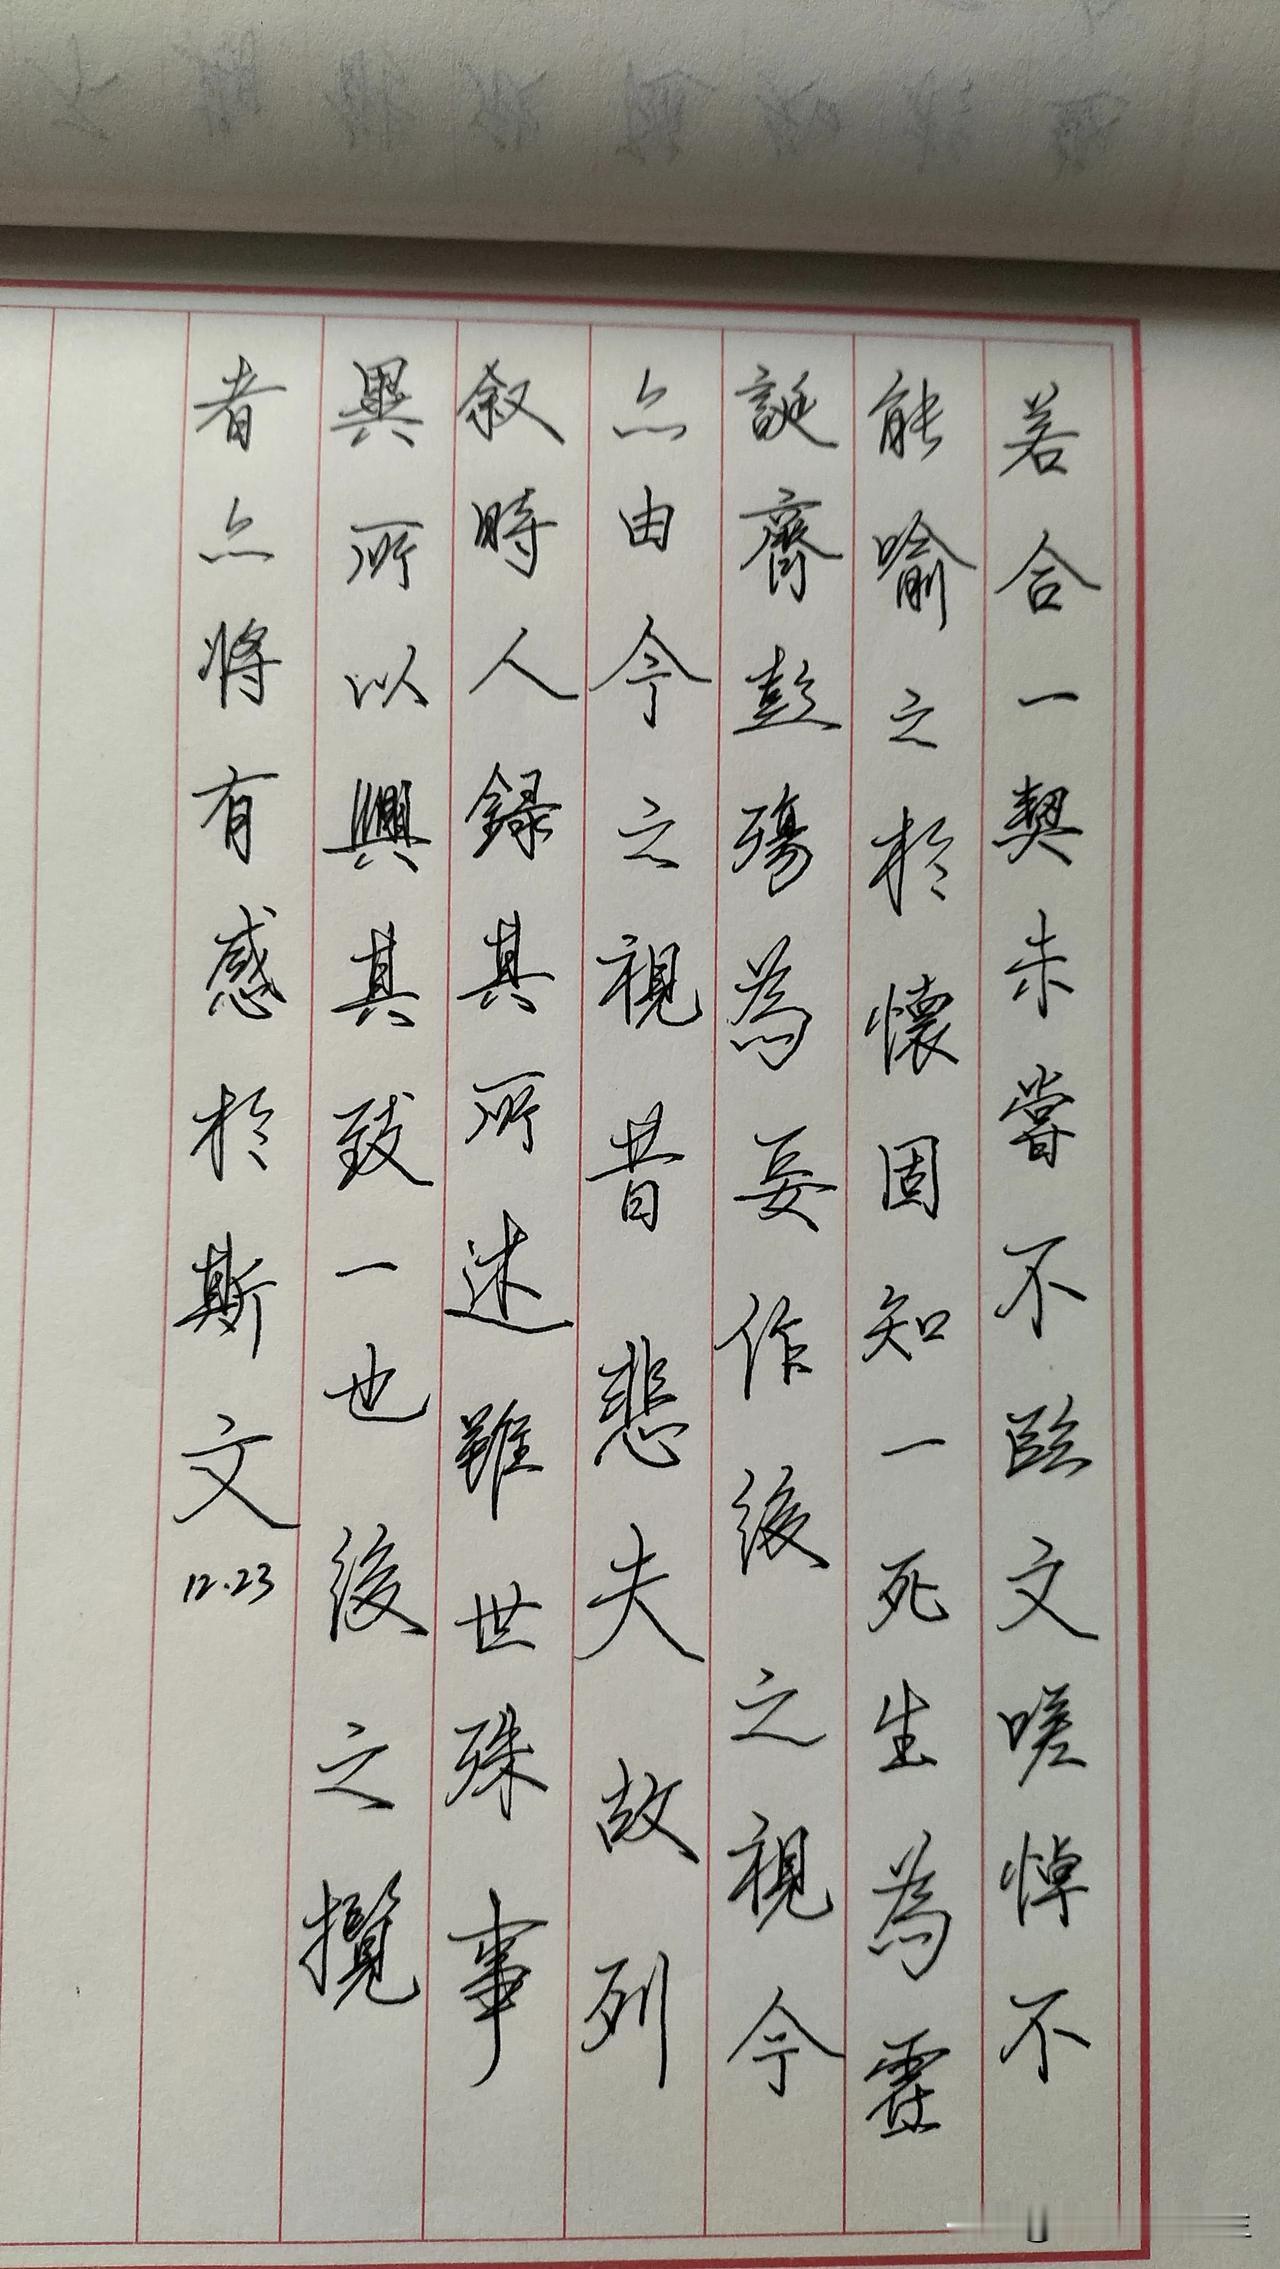 若合一契未嘗不臨文嗟悼不
能喻之於懷固知一死生為虛
誕齊彭殤為妄作後之視今
亦由今之視昔悲夫故列
敘時人錄其所述雖世殊事
異所以興其致一也後之攬
者亦將有感於斯文
12.23